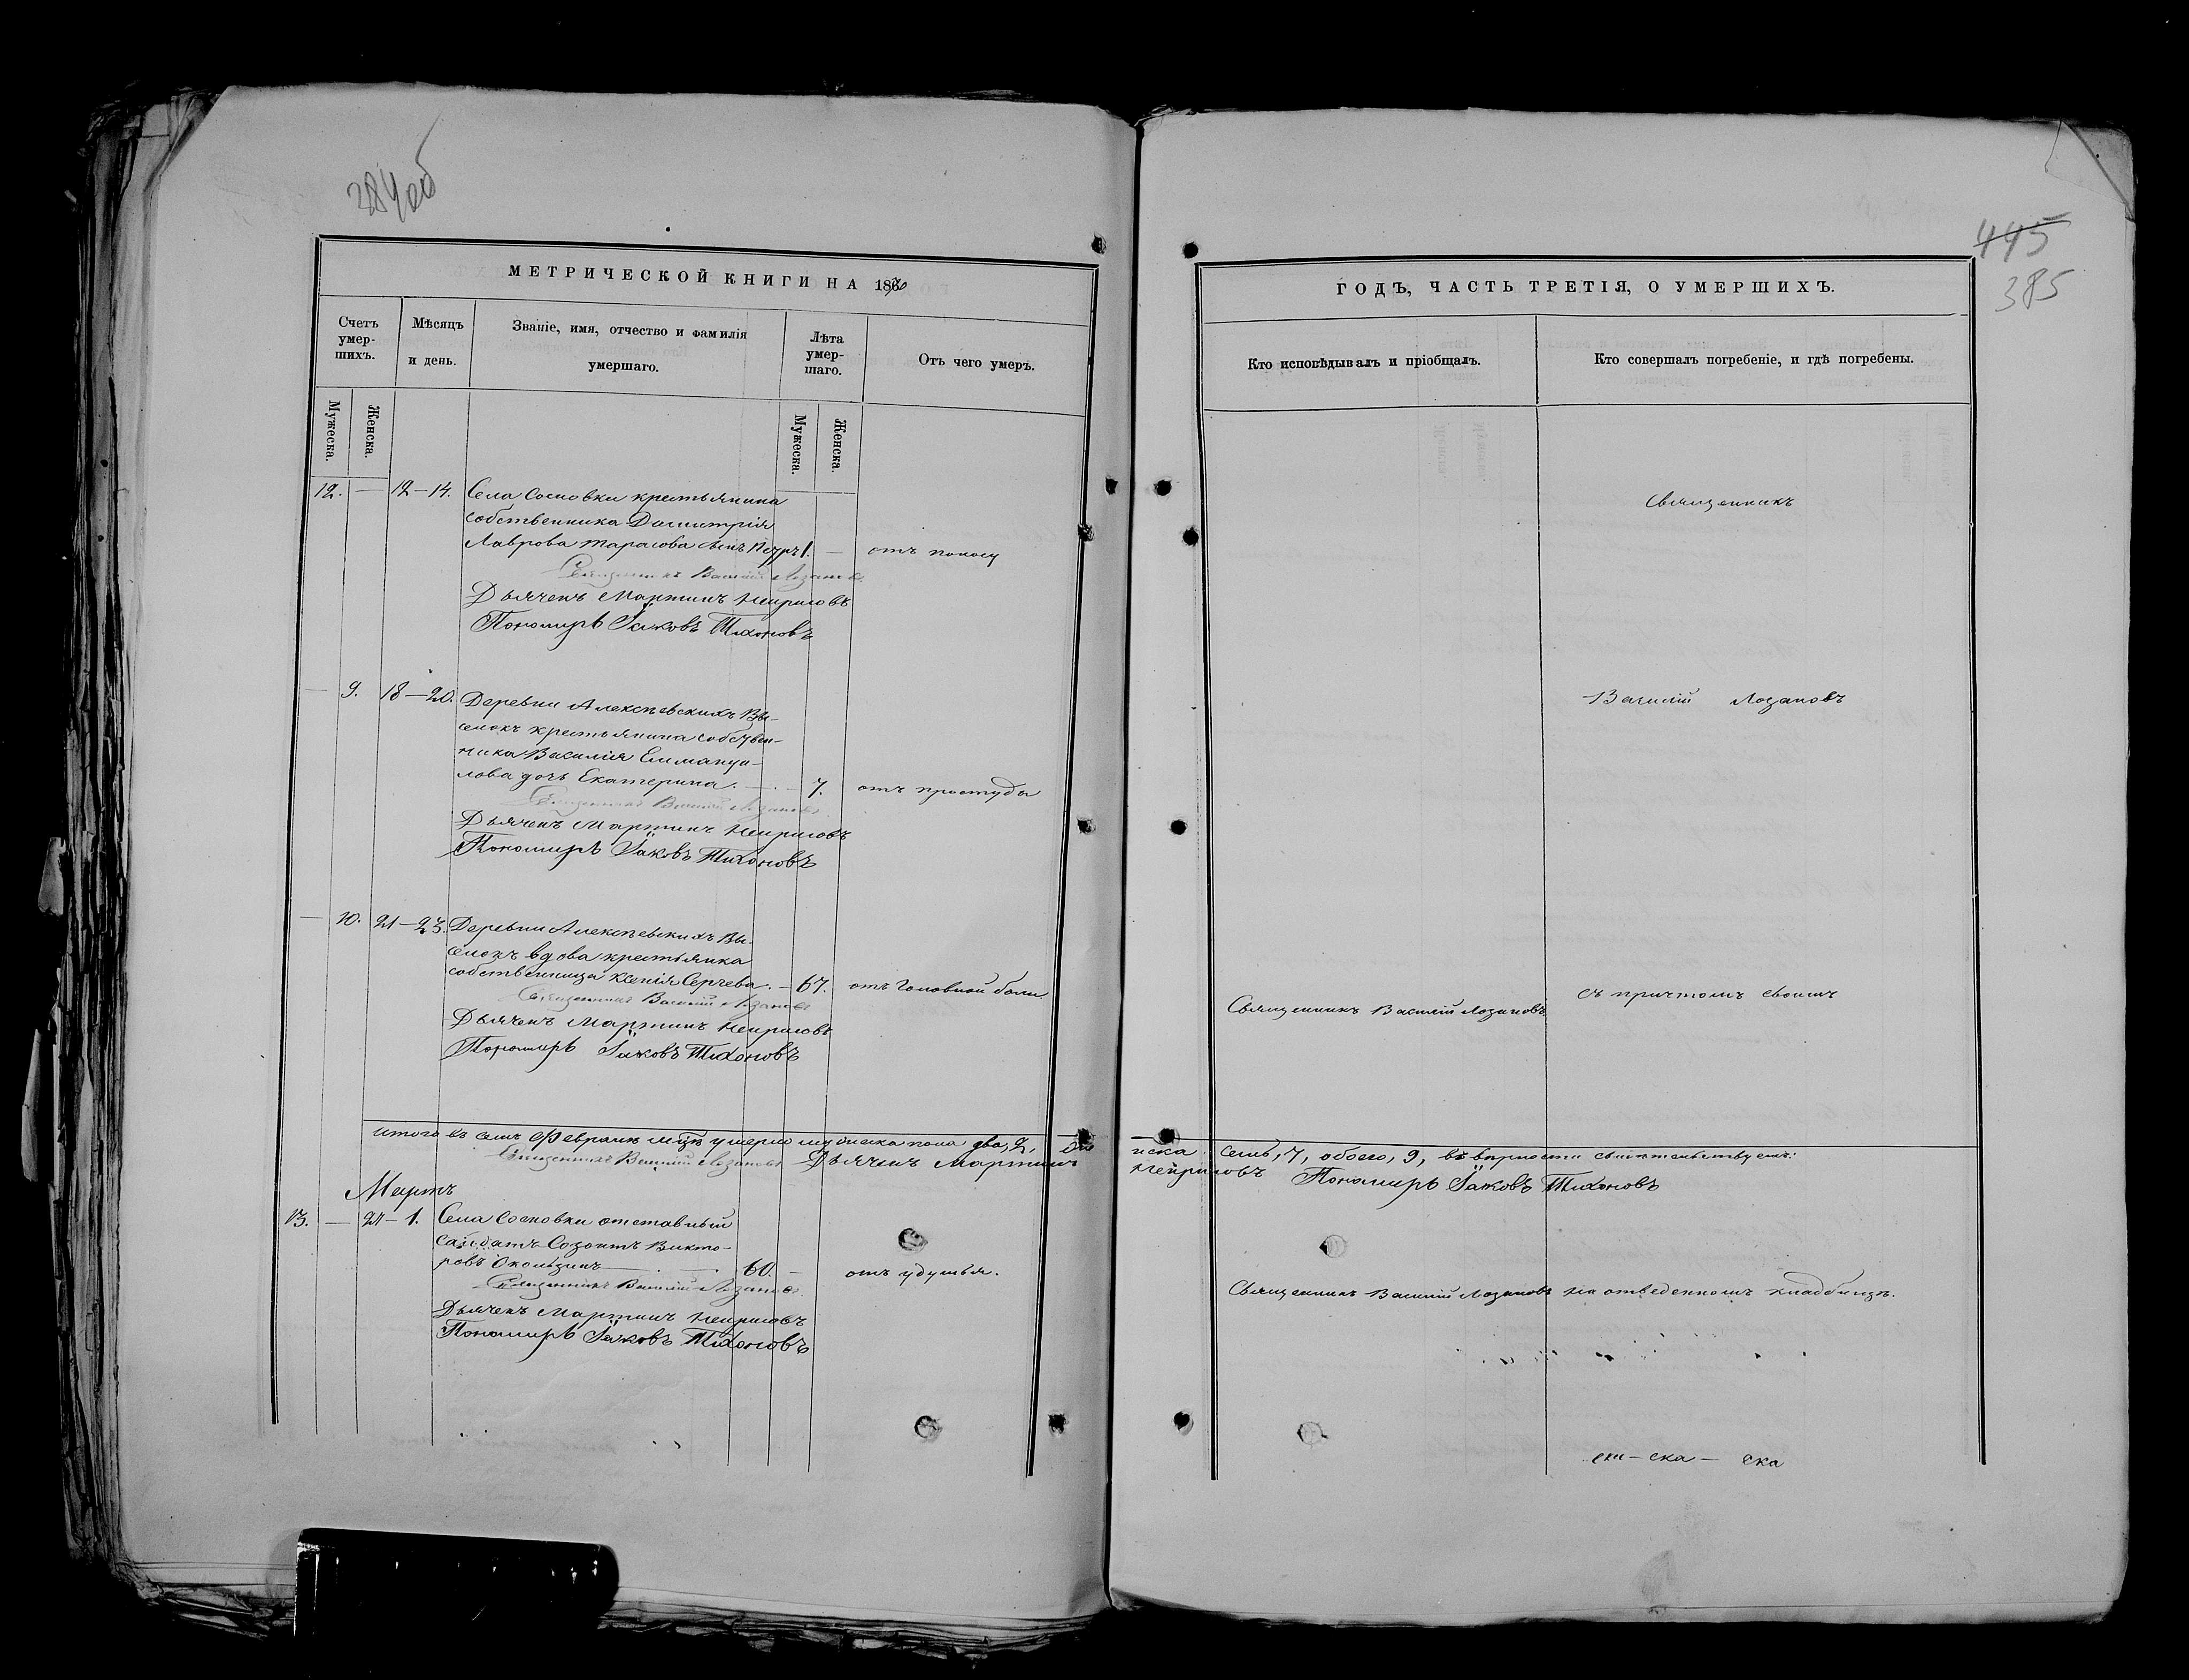 384об
МЕТРИЧЕСКОЙ КНИГИ НА 1870
Счетъ умершихъ.
Мѣсяцъ и день.
Званіе, имя, отчество и фамилія умершаго.
Лѣта умершаго.
Отъ чего умеръ.
Мужеска.
Женска.
Мужеска.
Женска.
12. — 12—14. Села Сосновки крестьянина
собственника Димитрія
Лаврова Тарасова сынъ Петръ 1. — отъ поносу
Священникъ Василій Лозановъ
Дьячекъ Мартинъ Неирисовъ
Пономарь Іаковъ Тихоновъ
— 9. 18—20. Деревни Алексѣевскихъ Вы-
селокъ крестьянина собствен-
ника Василія Еммануи-
лова дочь Екатерина. — 7. отъ простуды
Священникъ Василій Лозановъ
Дьячекъ Мартинъ Неирисовъ
Пономарь Іаковъ Тихоновъ
— 10. 21—23. Деревни Алексѣевскихъ Вы-
селокъ вдова крестьянка
собственница Ксенія Сергѣева. — 67. отъ головной боли
Священникъ Василій Лозановъ
Дьячекъ Мартинъ Неирисовъ
Пономарь Іаковъ Тихоновъ
Итого въ семъ Февралѣ м-цѣ умерло мужеска пола два, 2, же
Священникъ Василій Лозановъ Дьячекъ Мартинъ
Мартъ
13. — 27—1. Села Сосновки отставный
салдатъ Созонтъ Викто-
ровъ Окользинъ — 60. — отъ удушья.
Священникъ Василій Лозановъ
Дьячекъ Мартинъ Неирисовъ
Пономарь Іаковъ Тихоновъ
445
385
ГОДЪ, ЧАСТЬ ТРЕТІЯ, О УМЕРШИХЪ.
Кто исповѣдывалъ и пріобщалъ.
Кто совершалъ погребеніе, и гдѣ погребены.
Священникъ
Василій Лозановъ
Священникъ Василій Лозановъ съ причтомъ своимъ
нска семь, 7, обоего, 9, въ вѣрности свидѣтельствуемъ:
Неирисовъ Пономарь Іаковъ Тихоновъ
Священникъ Василій Лозановъ на отведенномъ кладбищѣ.
ска — ска — ска